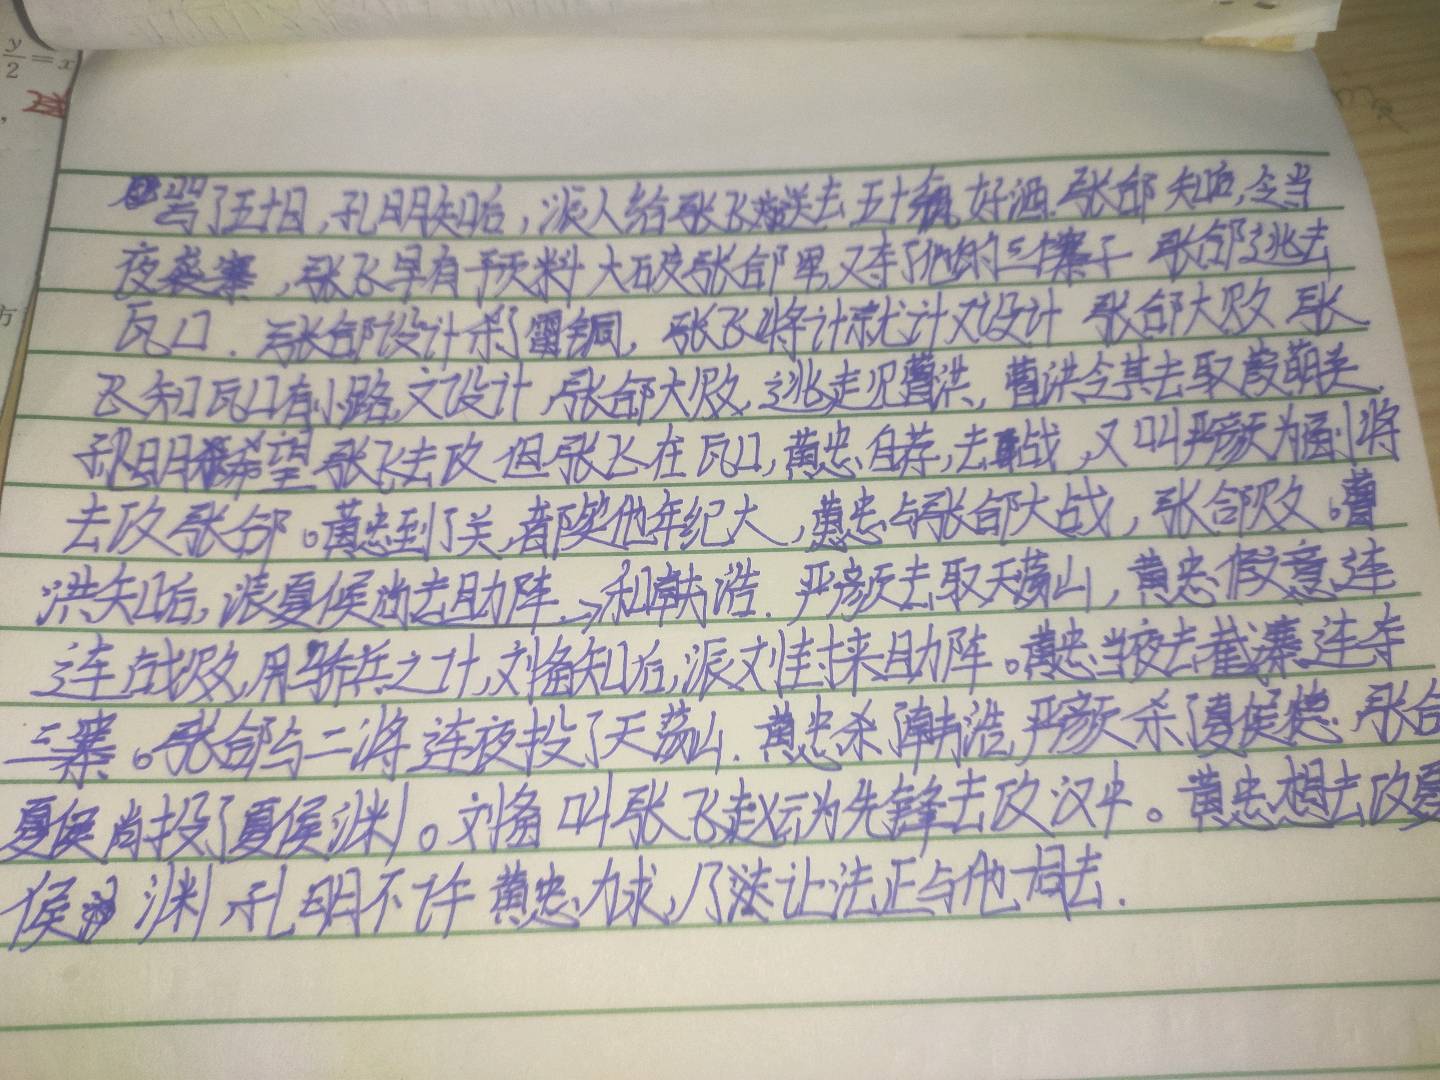 骂了五十日,孔明知后,派人给张飞送去五十瓶好酒.张郃知后,令当
夜袭寨,张飞早有预料 大破张郃军,又夺了他的三个寨子 张郃逃去
瓦口.张郃设计杀了雷铜,张飞将计就计又设计 张郃大败 张
飞知瓦口有小路,又设计,张郃大败,逃走见曹洪,曹洪令其去取葭萌关.
孔明希望张飞去攻 但张飞在瓦口,黄忠自荐,去战,又叫严颜为副将
去攻张郃。黄忠到了关,都笑他年纪大,黄忠与张郃大战,张郃败。曹
洪知后,派夏侯尚去助阵.→和韩浩.严颜去取天荡山,黄忠假意连
连战败,用骄兵之计,刘备知后,派刘封来助阵。黄忠当夜去截寨连夺
三寨。张郃与二将连夜投了天荡山.黄忠杀了韩浩,严颜杀了夏侯德.张郃
夏侯尚投了夏侯渊。刘备叫张飞赵云为先锋去攻汉中。黄忠想去攻夏
侯渊 孔明不许 黄忠力求,乃让法正与他同去.
y/2=x
方